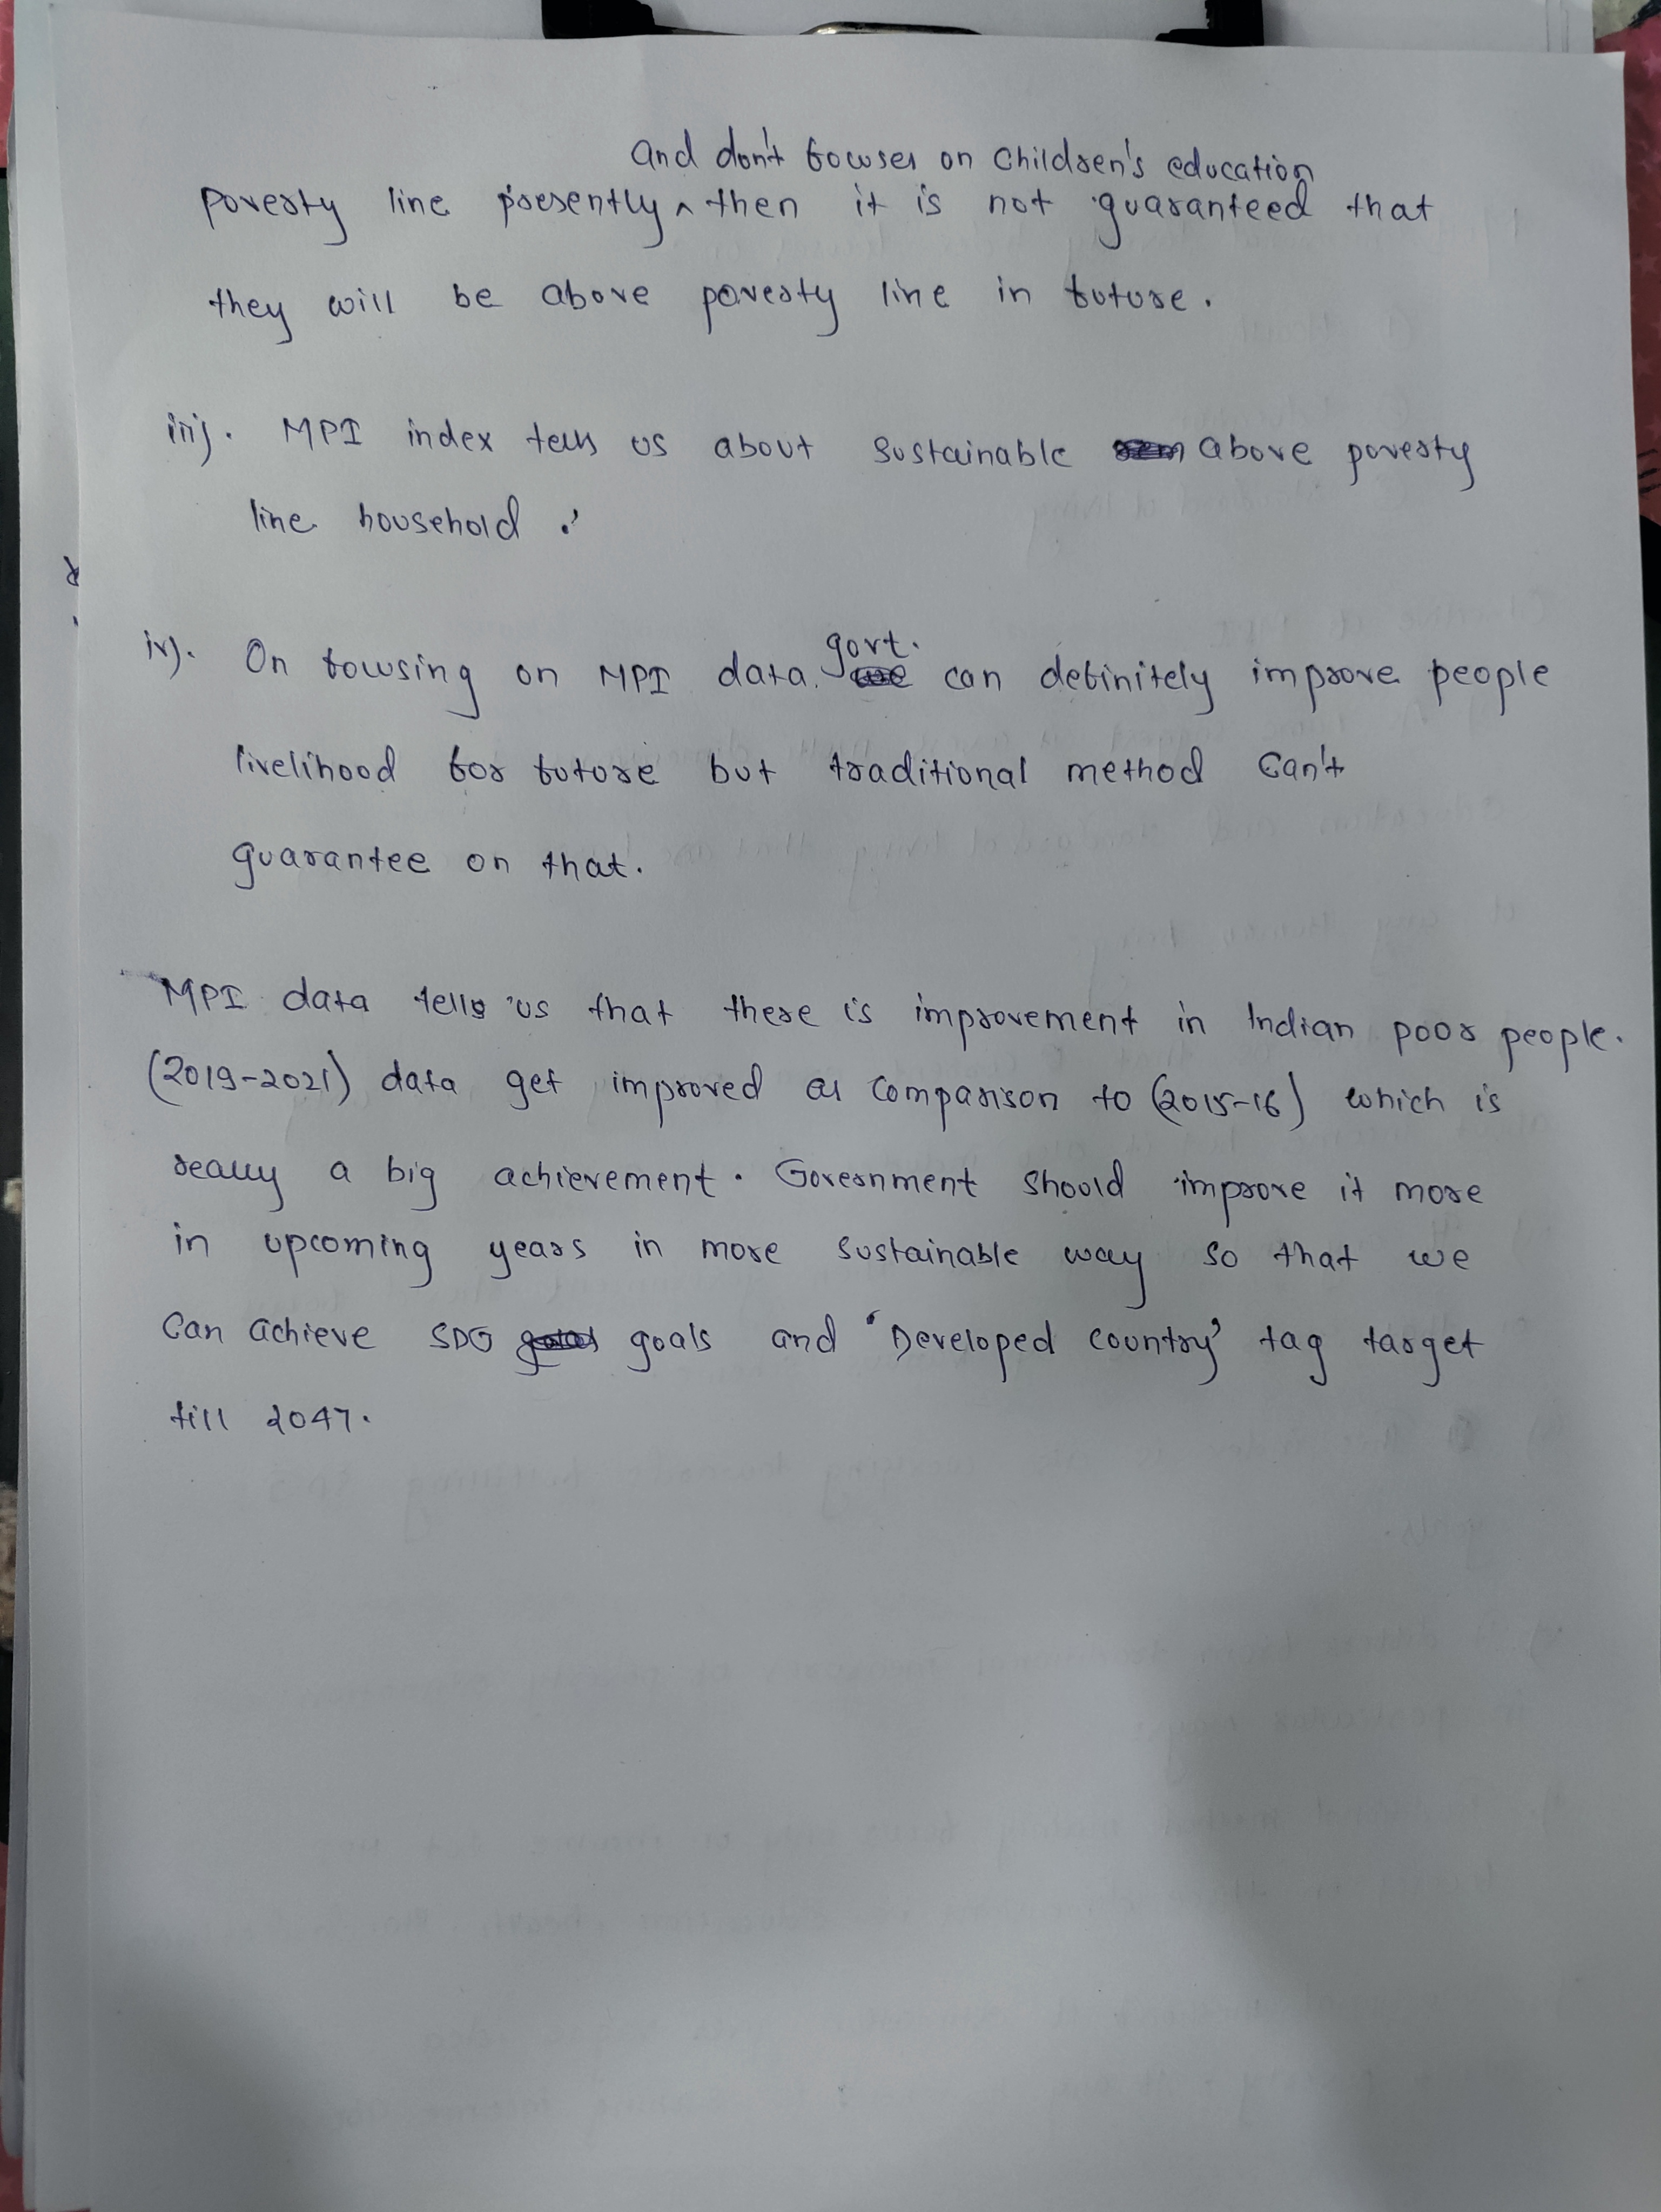 and don't focuses on children's education
poverty line presently ^ then it is not guaranteed that
they will be above poverty line in future.
iii). MPI index tells us about sustainable above poverty
line household.
iv). On focusing on MPI data govt. can definitely improve people
livelihood for future but traditional method can't
guarantee on that.
MPI data tells us that there is improvement in Indian poor people.
(2019-2021) data get improved as comparison to (2015-16) which is
really a big achievement. Government should improve it more
in upcoming years in more sustainable way so that we
can achieve SDG goals and 'Developed country' tag target
till 2047.